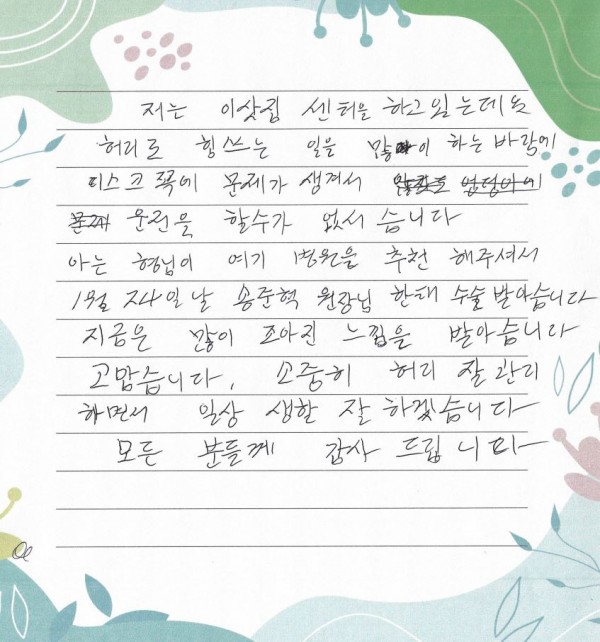 저는 이삿짐 센터을 하고 있는데요
허리로 힘쓰는 일을 많이 하는 바람에
디스크 쪽에 문제가 생겨서 엉덩이에
문제 운전을 할수가 없서 습니다
아는 형님이 여기 병원을 추천 해주셔서
1월 24일날 송준혁 원장님 한태 수술 발아습니다
지금은 많이 조아진 느낌을 발아습니다
고맙습니다, 소중히 허리 잘 관리
하면서 일상 생할 잘 하겠습니다
모든 분들께 감사 드립 니다